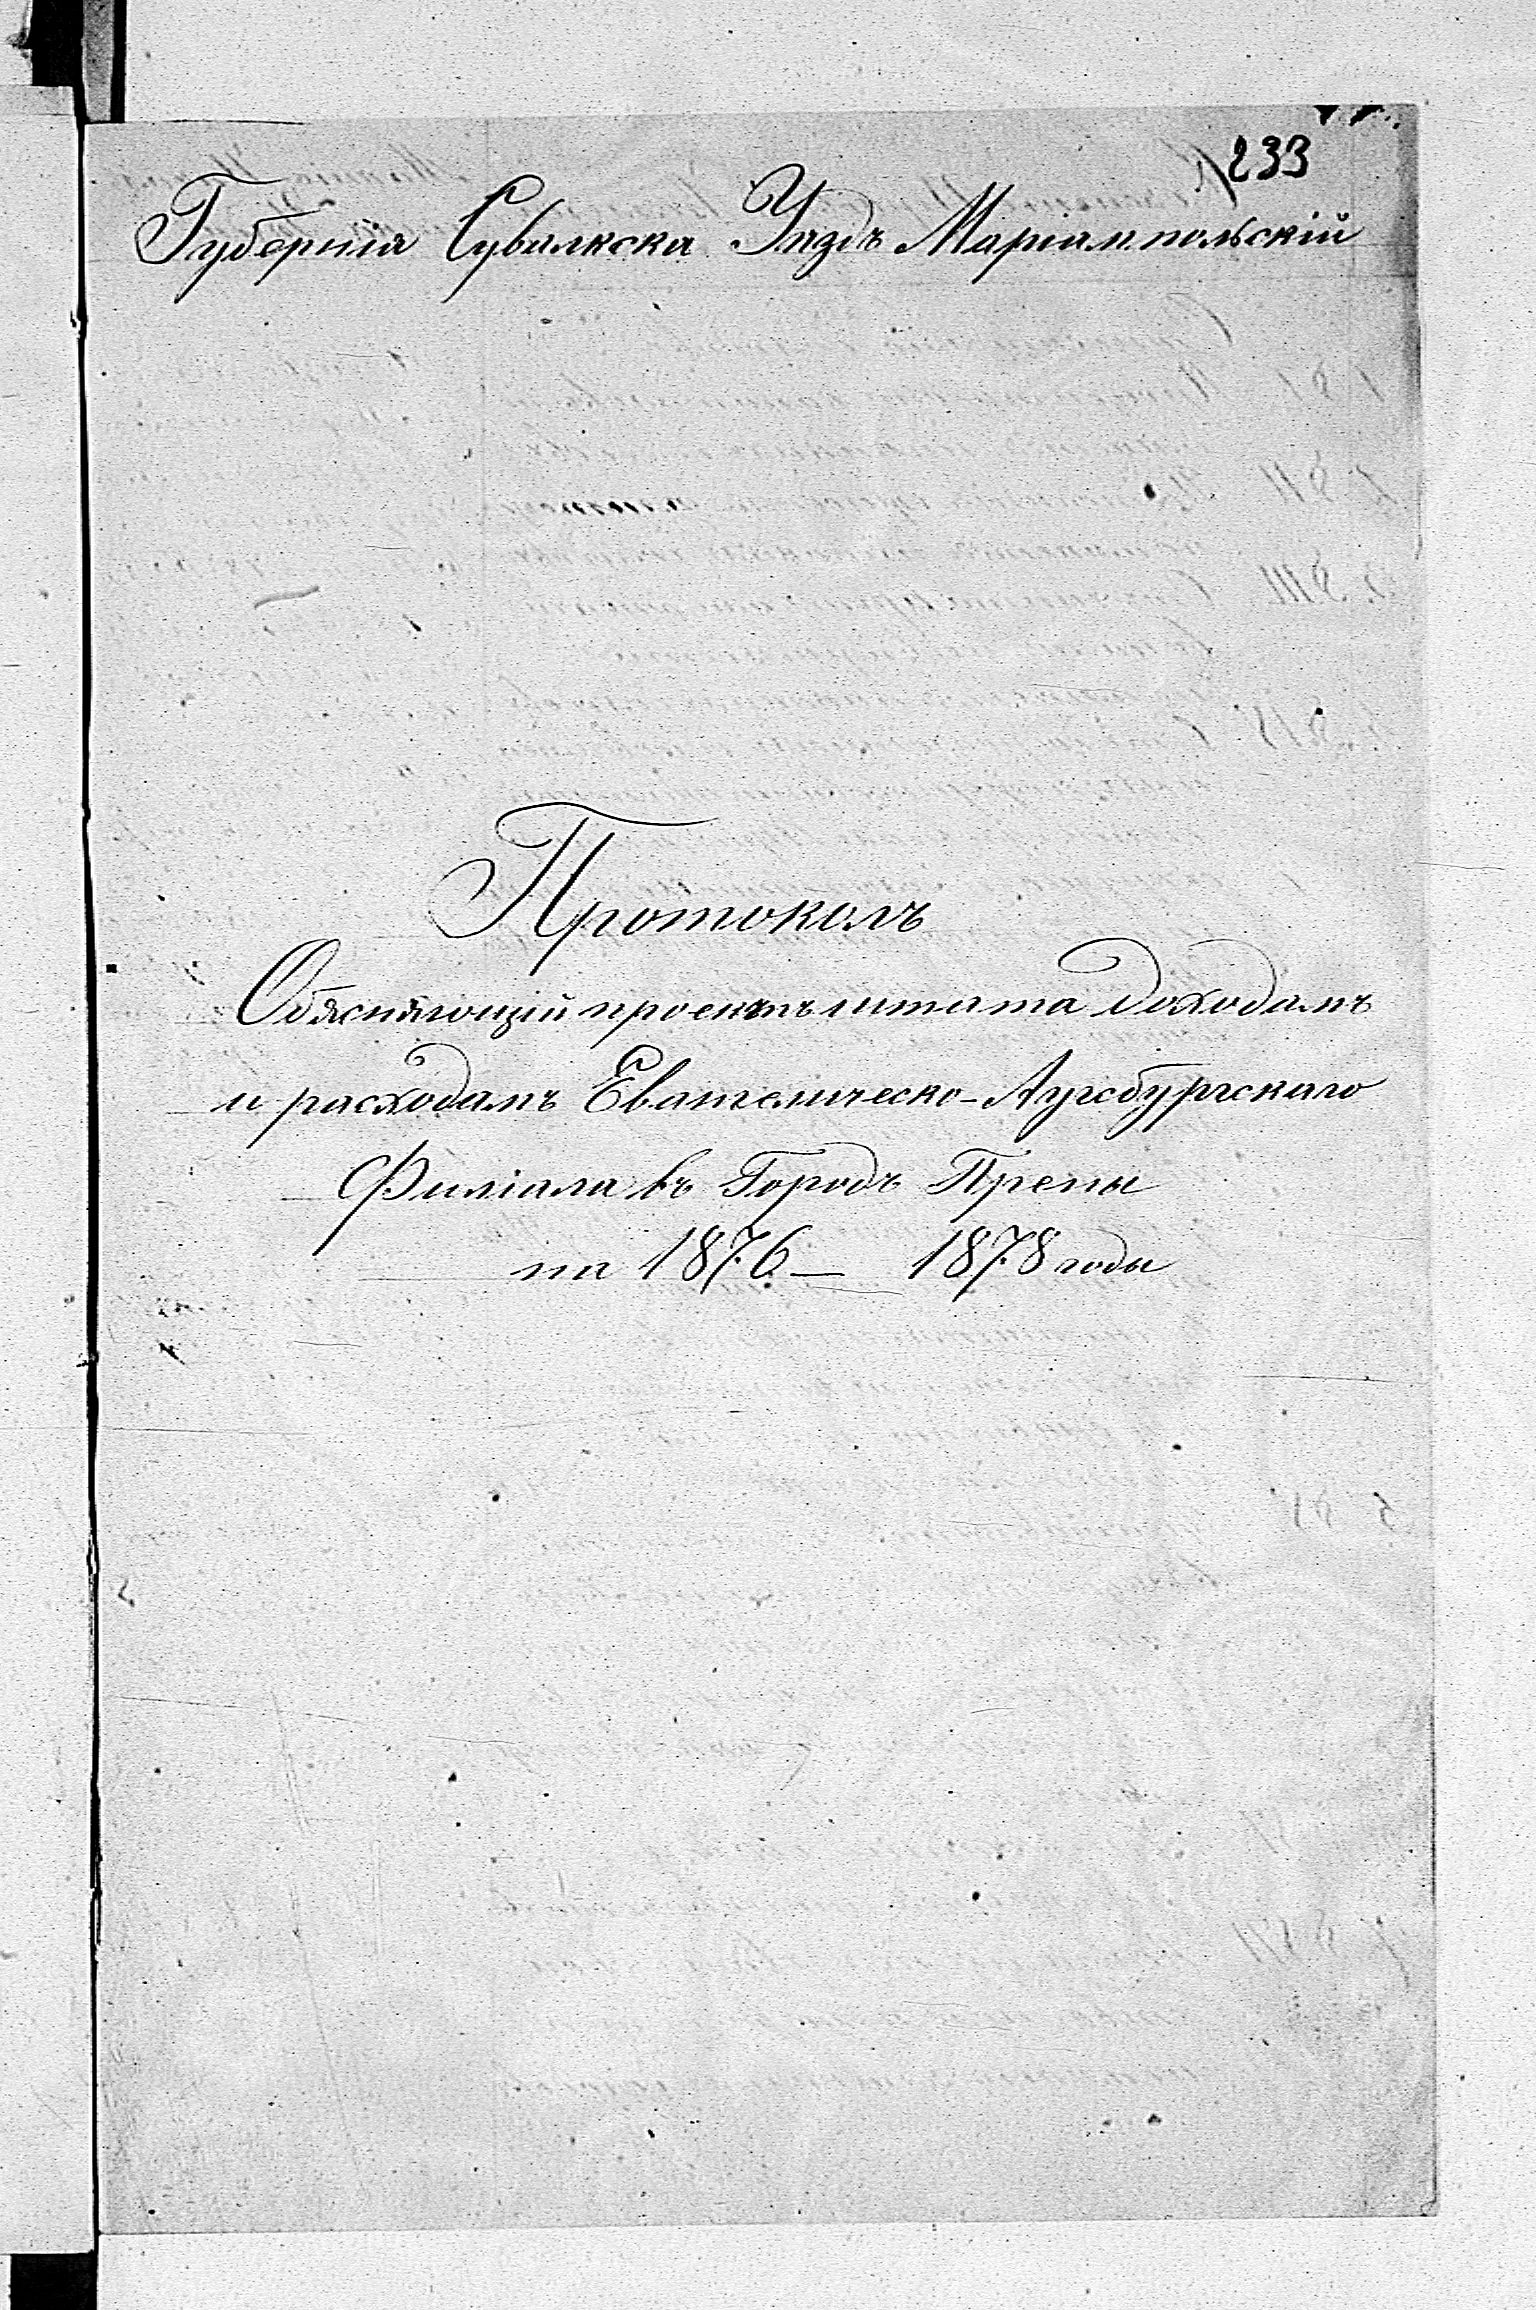 233
Губернія Сувалкска Уѣздъ Маріампольскій
Протоколъ
Обясняющій проектъ штата доходамъ
и расходамъ Евангелическо-Аугсбургскаго
Филіала въ Городѣ Прены
на 1876 — 1878 годы